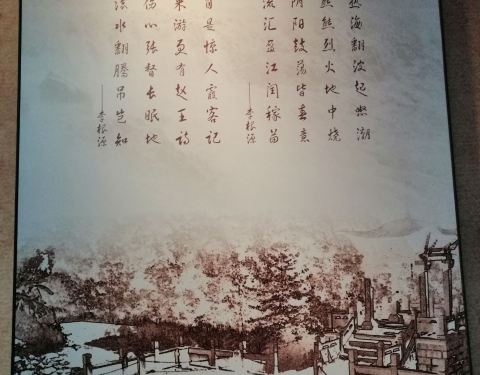 热海翻波起怒潮
熊熊烈火地中烧
阴阳鼓荡皆意
流汇盈江润稼苗
——李根源
自是惊人霞客记
来游更有赵王诗
伤心张督长眠地
水翻腾吊岂知
——李根源